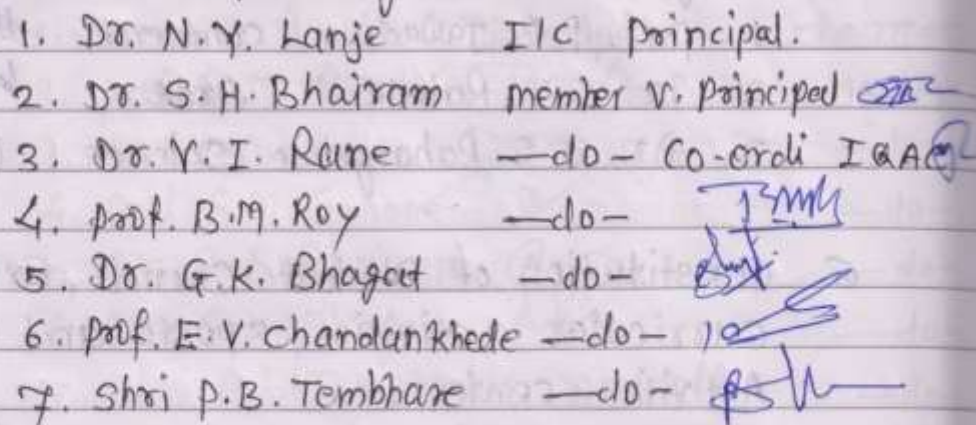 1. Dr. N.Y. Lanje I/C Principal.
2. Dr. S.H. Bhairam member V. Principal
3. Dr. V.I. Rane —do— Co-ordi IQAC
4. prof. B.M. Roy —do—
5. Dr. G.K. Bhagat —do—
6. prof. E.V. Chandankhede —do—
7. Shri P.B. Tembhare —do—